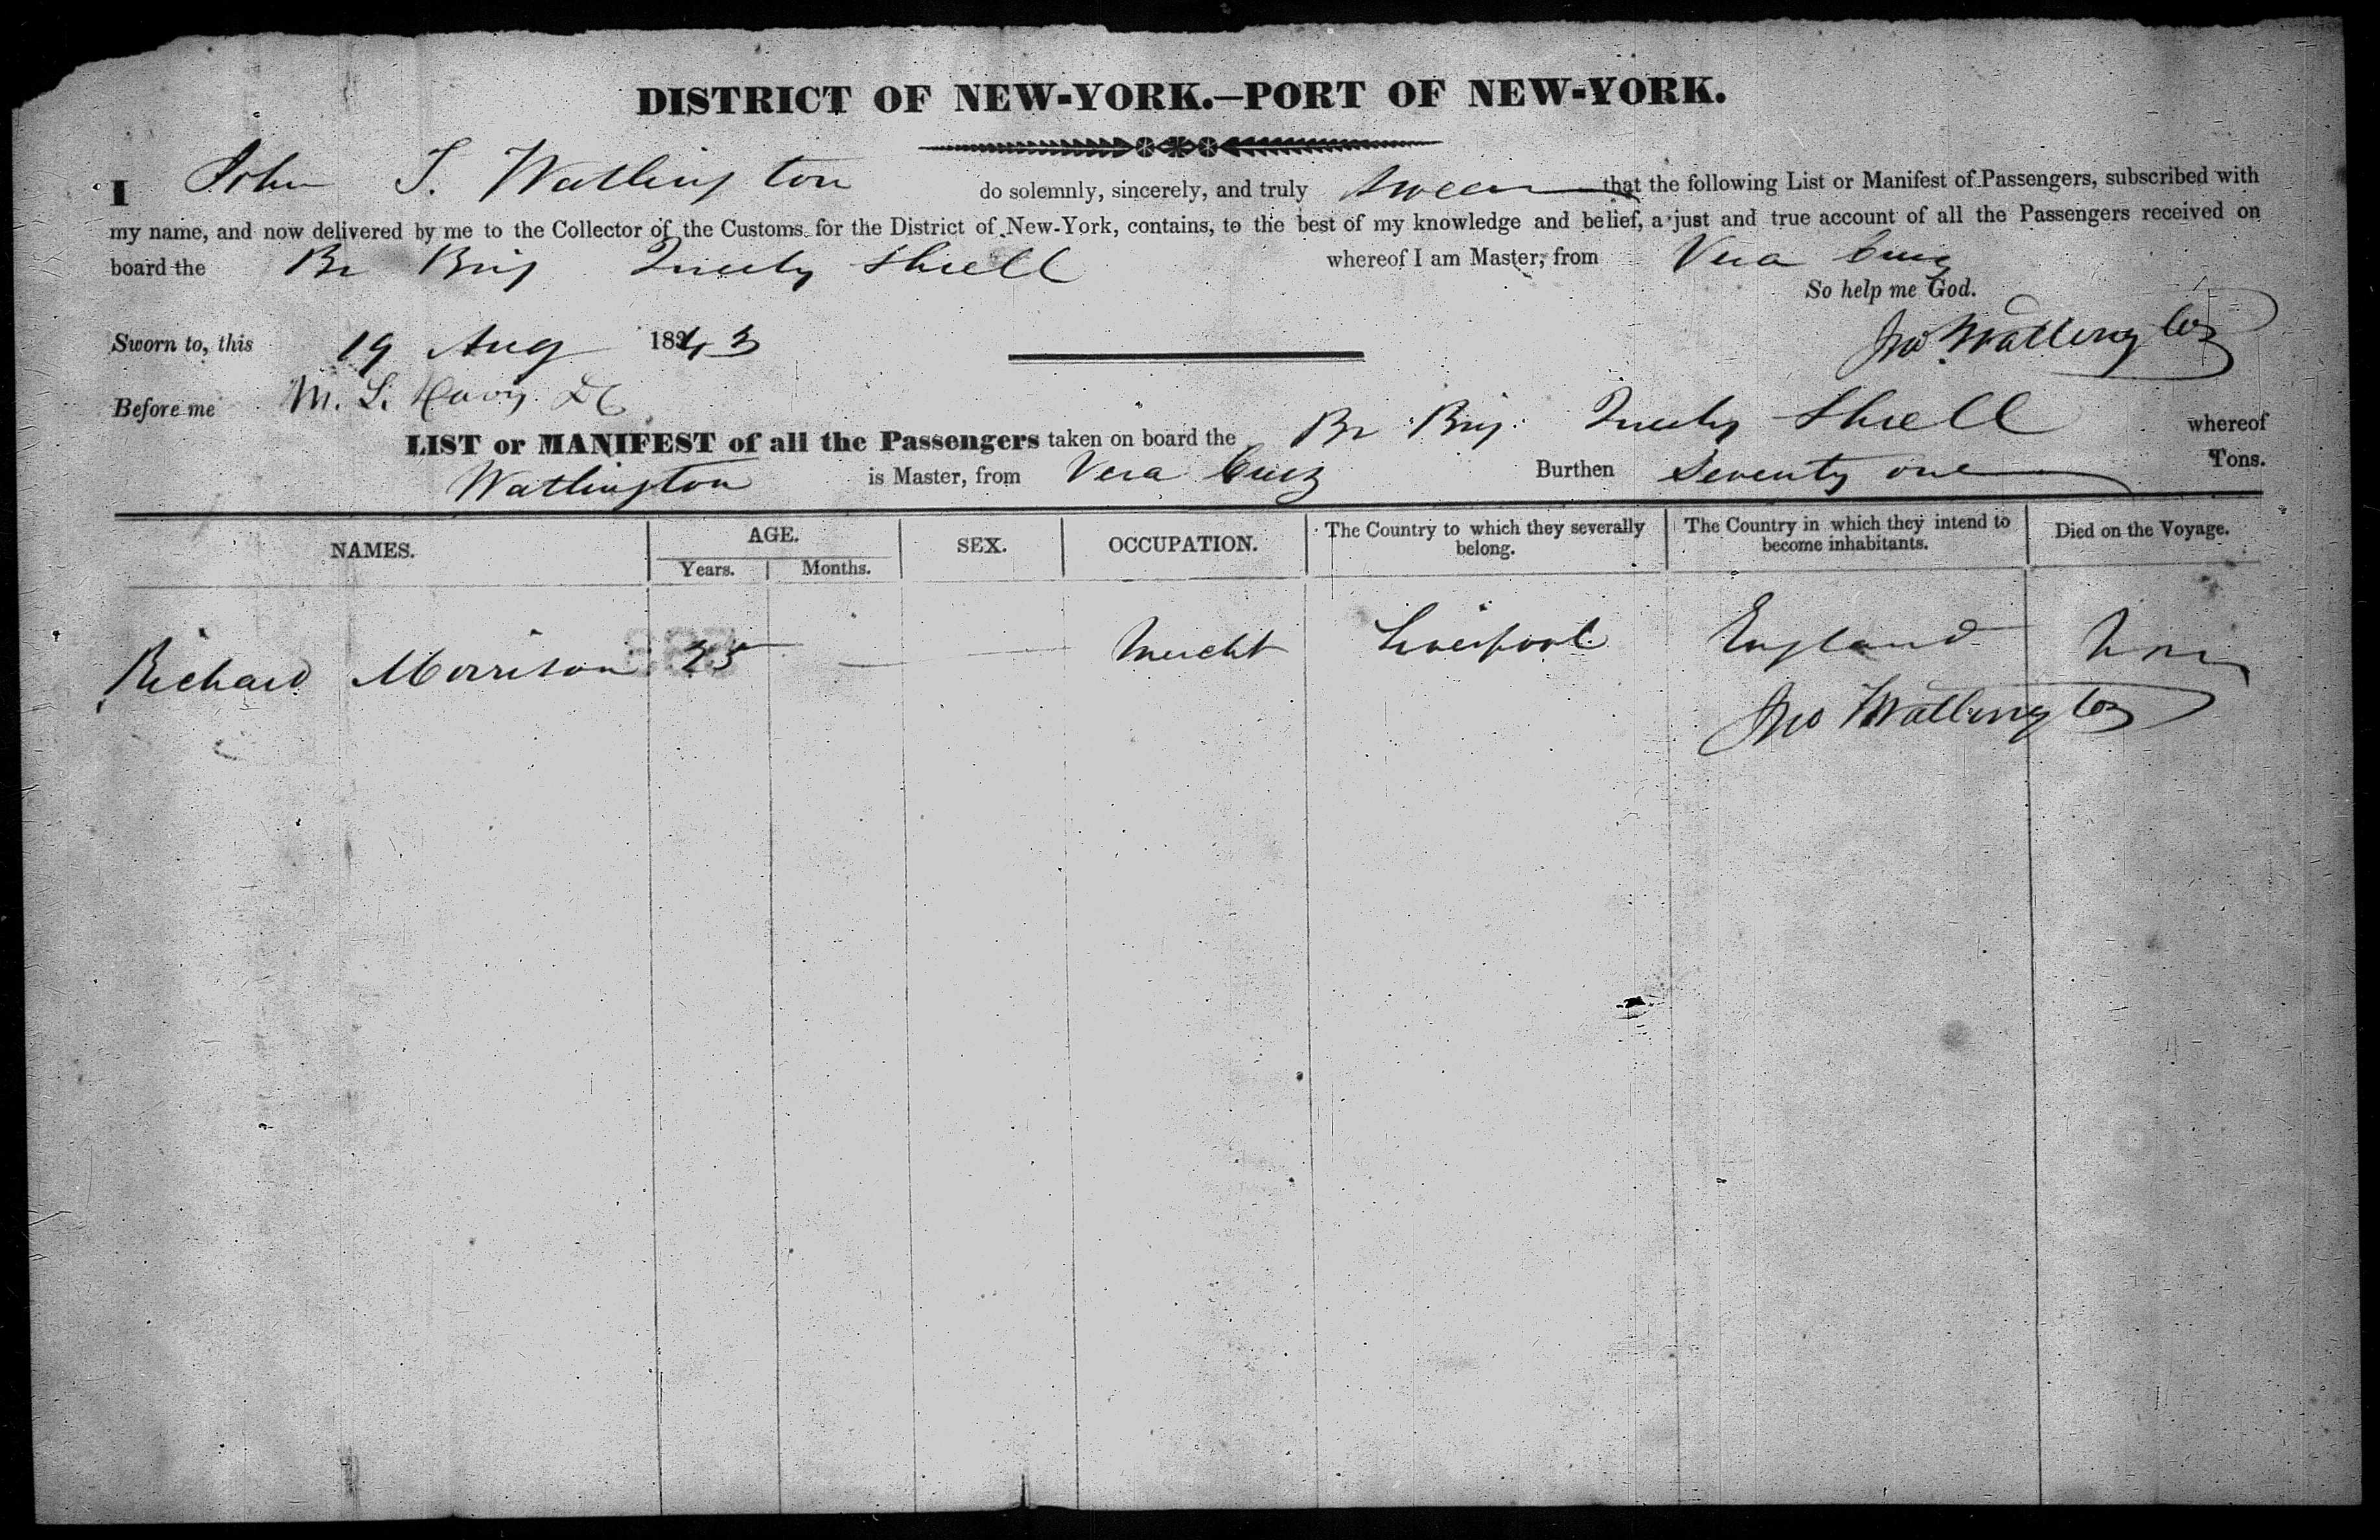 DISTRICT OF NEW-YORK.—PORT OF NEW-YORK.
I John T. Watlington do solemnly, sincerely, and truly swear that the following List or Manifest of Passengers, subscribed with
my name, and now delivered by me to the Collector of the Customs for the District of New-York, contains, to the best of my knowledge and belief, a just and true account of all the Passengers received on
board the Br Brig Shiell whereof I am Master, from Vera Cruz
So help me God.
Sworn to, this 19 Aug 1843
Jno Watlington
Before me M. L. Davis DC
LIST or MANIFEST of all the Passengers taken on board the Br Brig Shiell whereof
Watlington is Master, from Vera Cruz Burthen Seventy one Tons.
NAMES. AGE. SEX. OCCUPATION. The Country to which they severally belong. The Country in which they intend to become inhabitants. Died on the Voyage.
Years. Months.
Richard Morrison 25 — — Mercht Liverpool England None
Jno Watlington